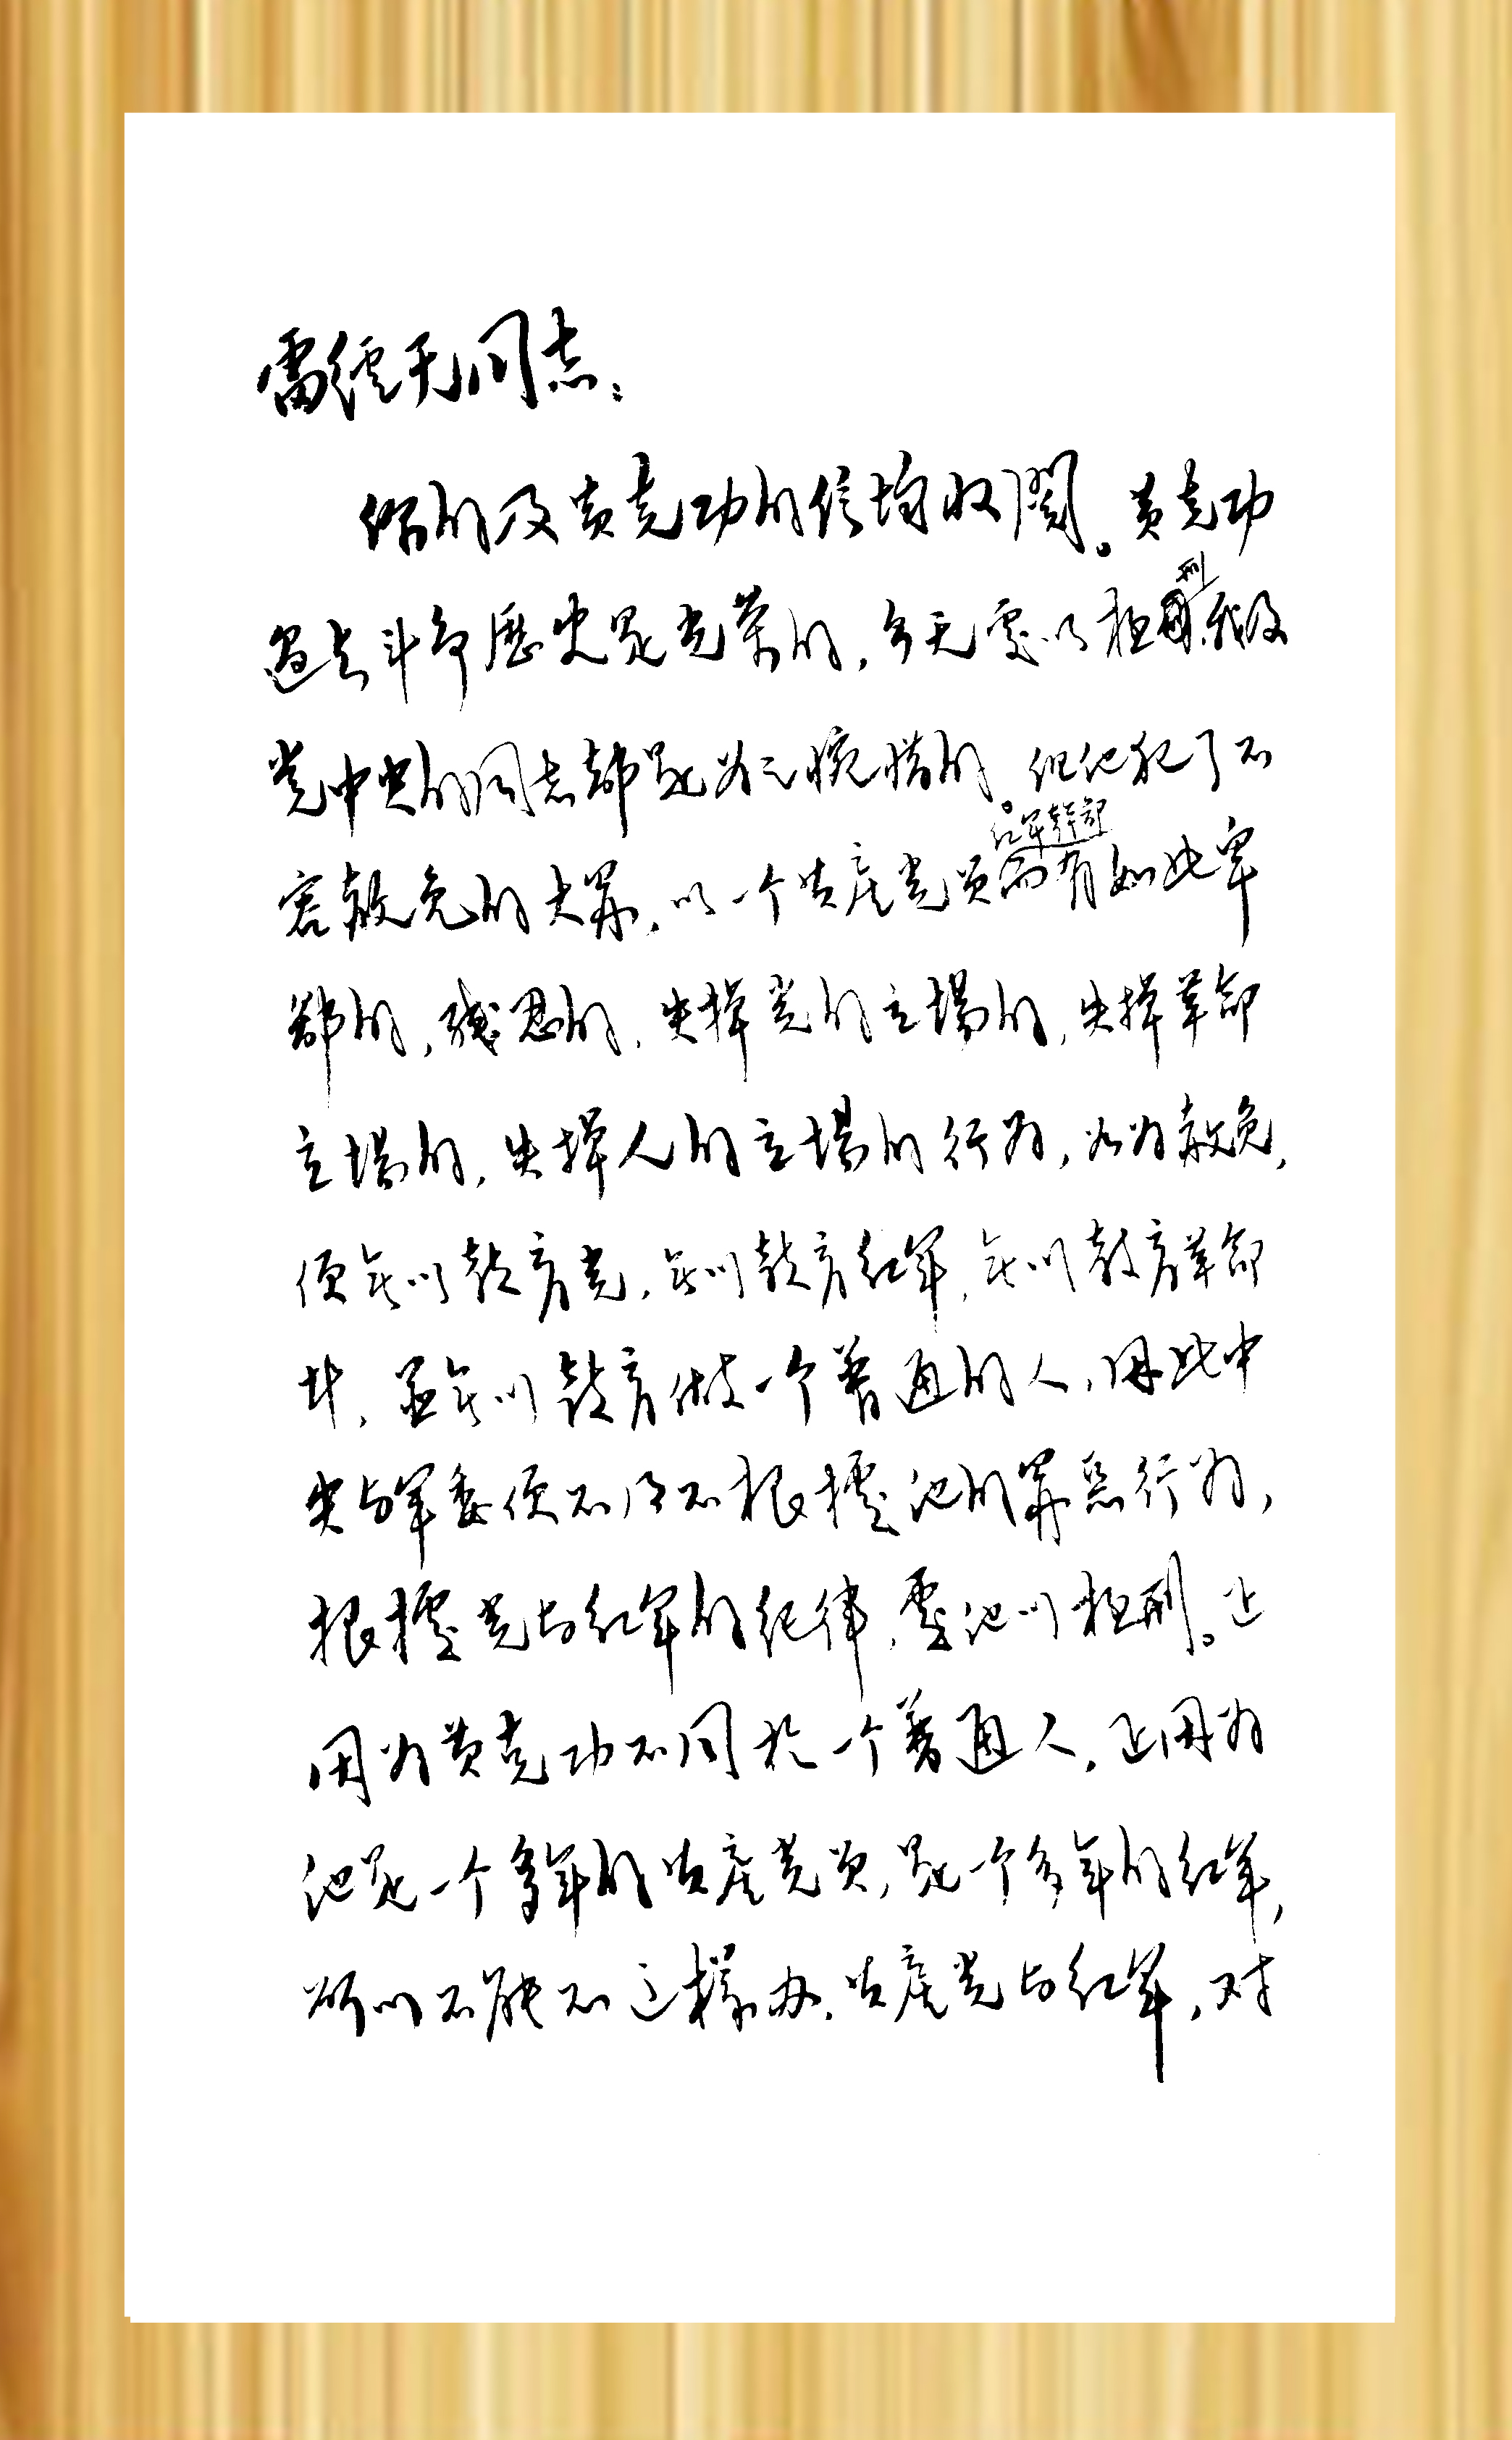 雷經天同志：
你的及黄克功的信均收閱。黄克功
過去斗争歷史是光荣的，今天處以极刑，我及
党中央的同志都是为之惋惜的。但他犯了不
容赦免的大罪，以一个共産党員紅軍幹部而有如此卑
鄙的，殘忍的，失掉党的立場的，失掉革命
立場的，失掉人的立場的行为，如为赦免，
便无以教育党，无以教育紅軍，无以教育革命
者，並无以教育做一个普通的人，因此中
央与軍委便不得不根據他的罪惡行为，
根據党与紅軍的紀律，處他以极刑。正
因为黄克功不同於一个普通人，正因为
他是一个多年的共産党員，是一个多年的紅軍，
所以不能不这樣办。共産党与紅軍，对